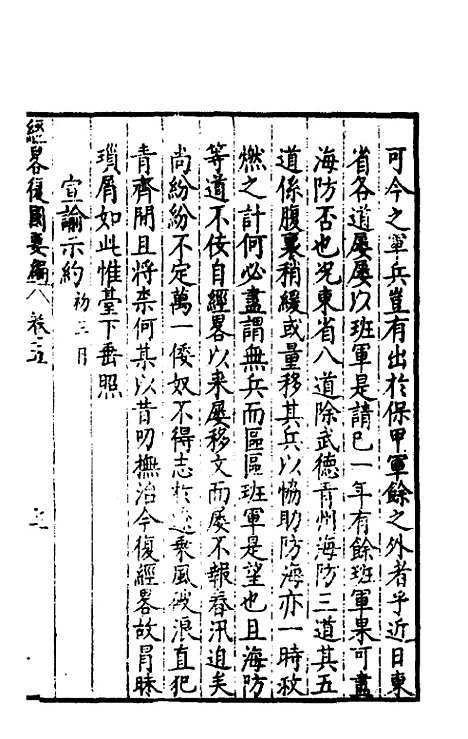 可今之軍兵豈有出於保甲軍餘之外者乎近日東
省各道屢屢以班軍是請已一年有餘班軍果可盡
海防否也况東省八道除武德青州海防三道其五
道係腹裏稍緩或量移其兵以協助防海亦一時救
燃之計何必盡謂無兵而區區班軍是望也且海防
等道不佞自經畧以來屢移文而屢不報春汛迫矣
尚紛紛不定萬一倭奴不得志於遼乘風破浪直犯
青齊間且將柰何某以昔叨撫治今復經畧故冐昧
瑣屑如此惟臺下垂照
宣諭示約 初三日
經畧復國要編 卷之五